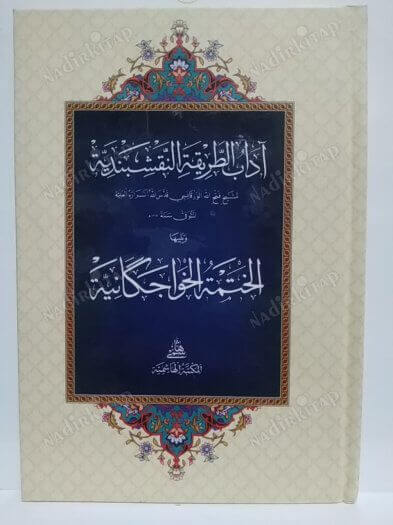 آداب الطريقة النقشبندية
للشيخ فتح الله الورقانسي قدس الله أسراره العلية
المتوفى سنة
ويليها
الختمة الخواجكانية
هاشمي
المكتبة الهاشمية
NadirKitap